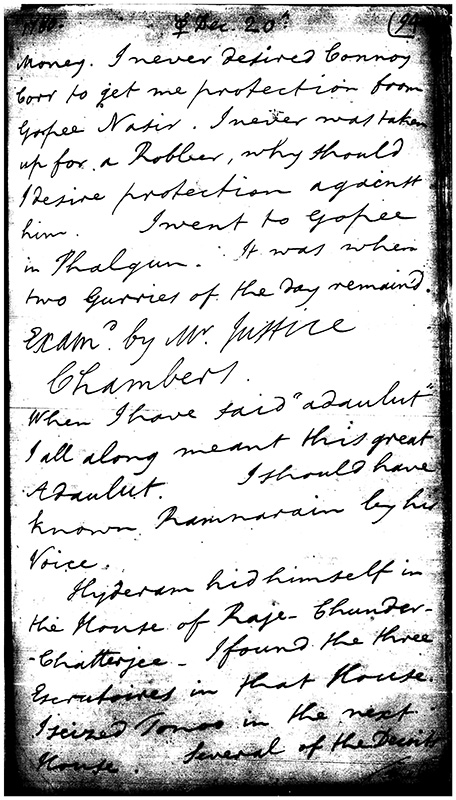 1780. ☿ Dec. 20th (94
Money. I never desired Connoy
Corr to get me protection from
Gopee Nasir. I never was taken
up for a Robber, why should
I desire protection against
him. I went to Gopee
in Phalgun. It was when
two Gurries of the day remaind.
Examd. by Mr. Justice
Chambers.
When I have said "adaulut"
I all along meant this great
Adaulut. I should have
known Ramnarain by his
Voice.
Hyderam hid himself in
the House of Raje- Chunder-
-Chatterjee - I found the three
Escrutoires in that House.
I seized Tonoo in the next
House. Several of the Dewits